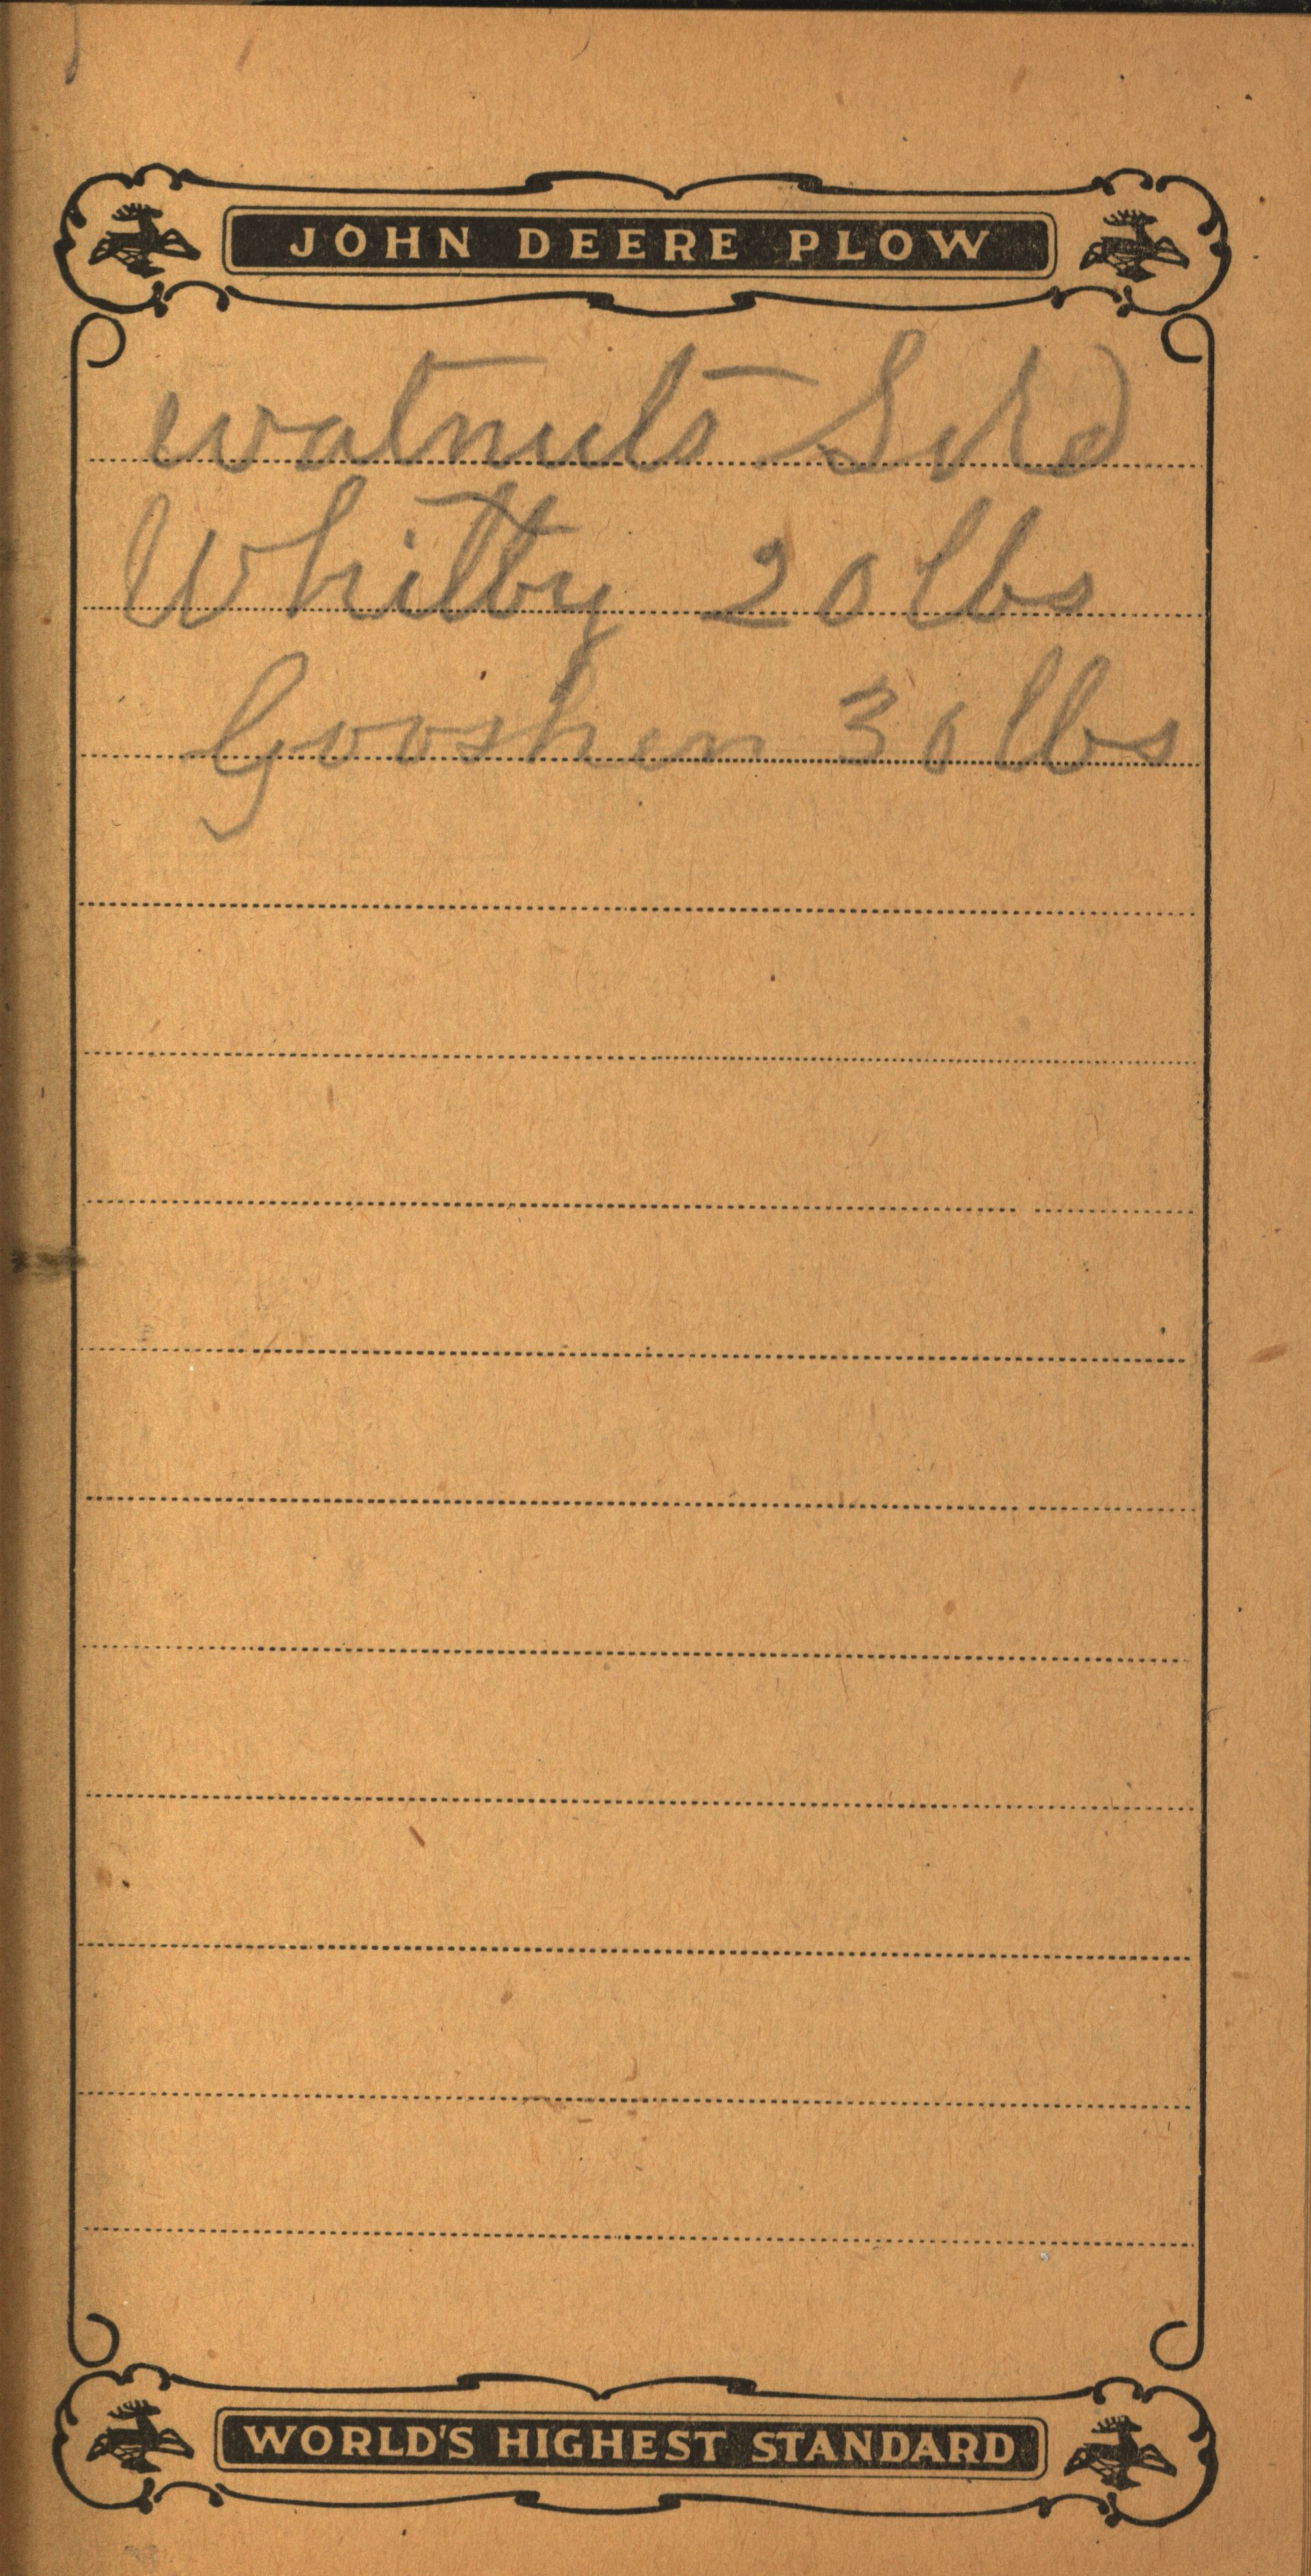 JOHN DEERE PLOW
Walnuts Sold
Whitby 20 lbs
Gooshen 30 lbs
WORLD'S HIGHEST STANDARD